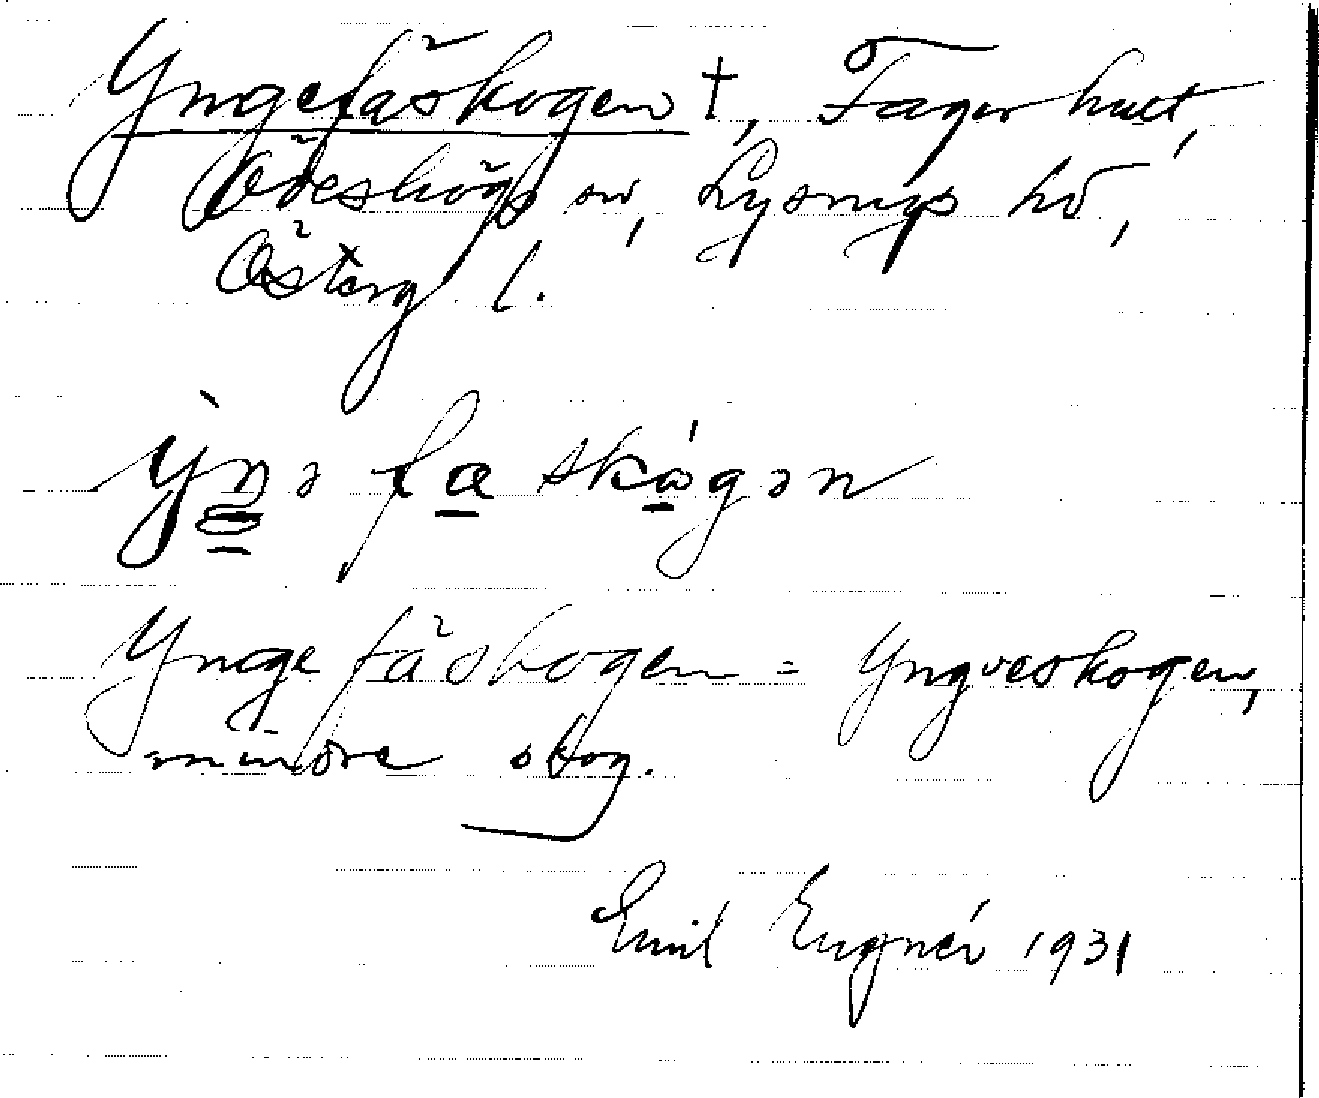 Yngefåskogen †, Fagerhult,
Ödeshögs sn, Lysings hd,
Österg. l.
ỳŋə fa skógən
Yngefåskogen = Yngveskogen,
mindre skog.
Emil Engnér 1931